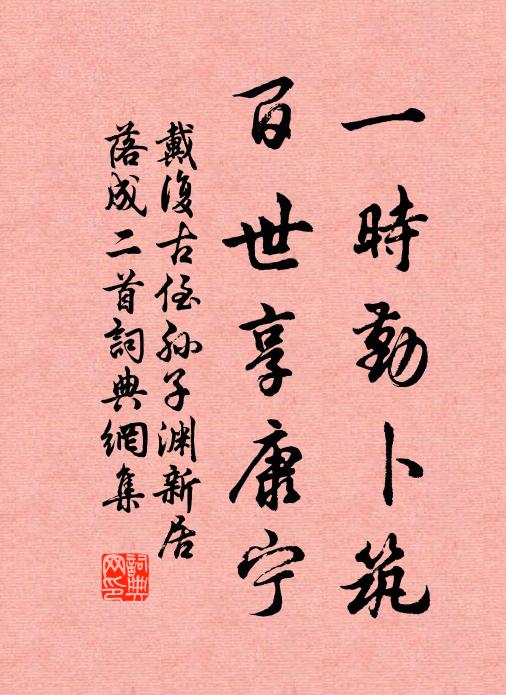 一時勤卜筑
百世享康宁
戴復古侄孙子渊新居
落成二首詞典網集
詞典网印